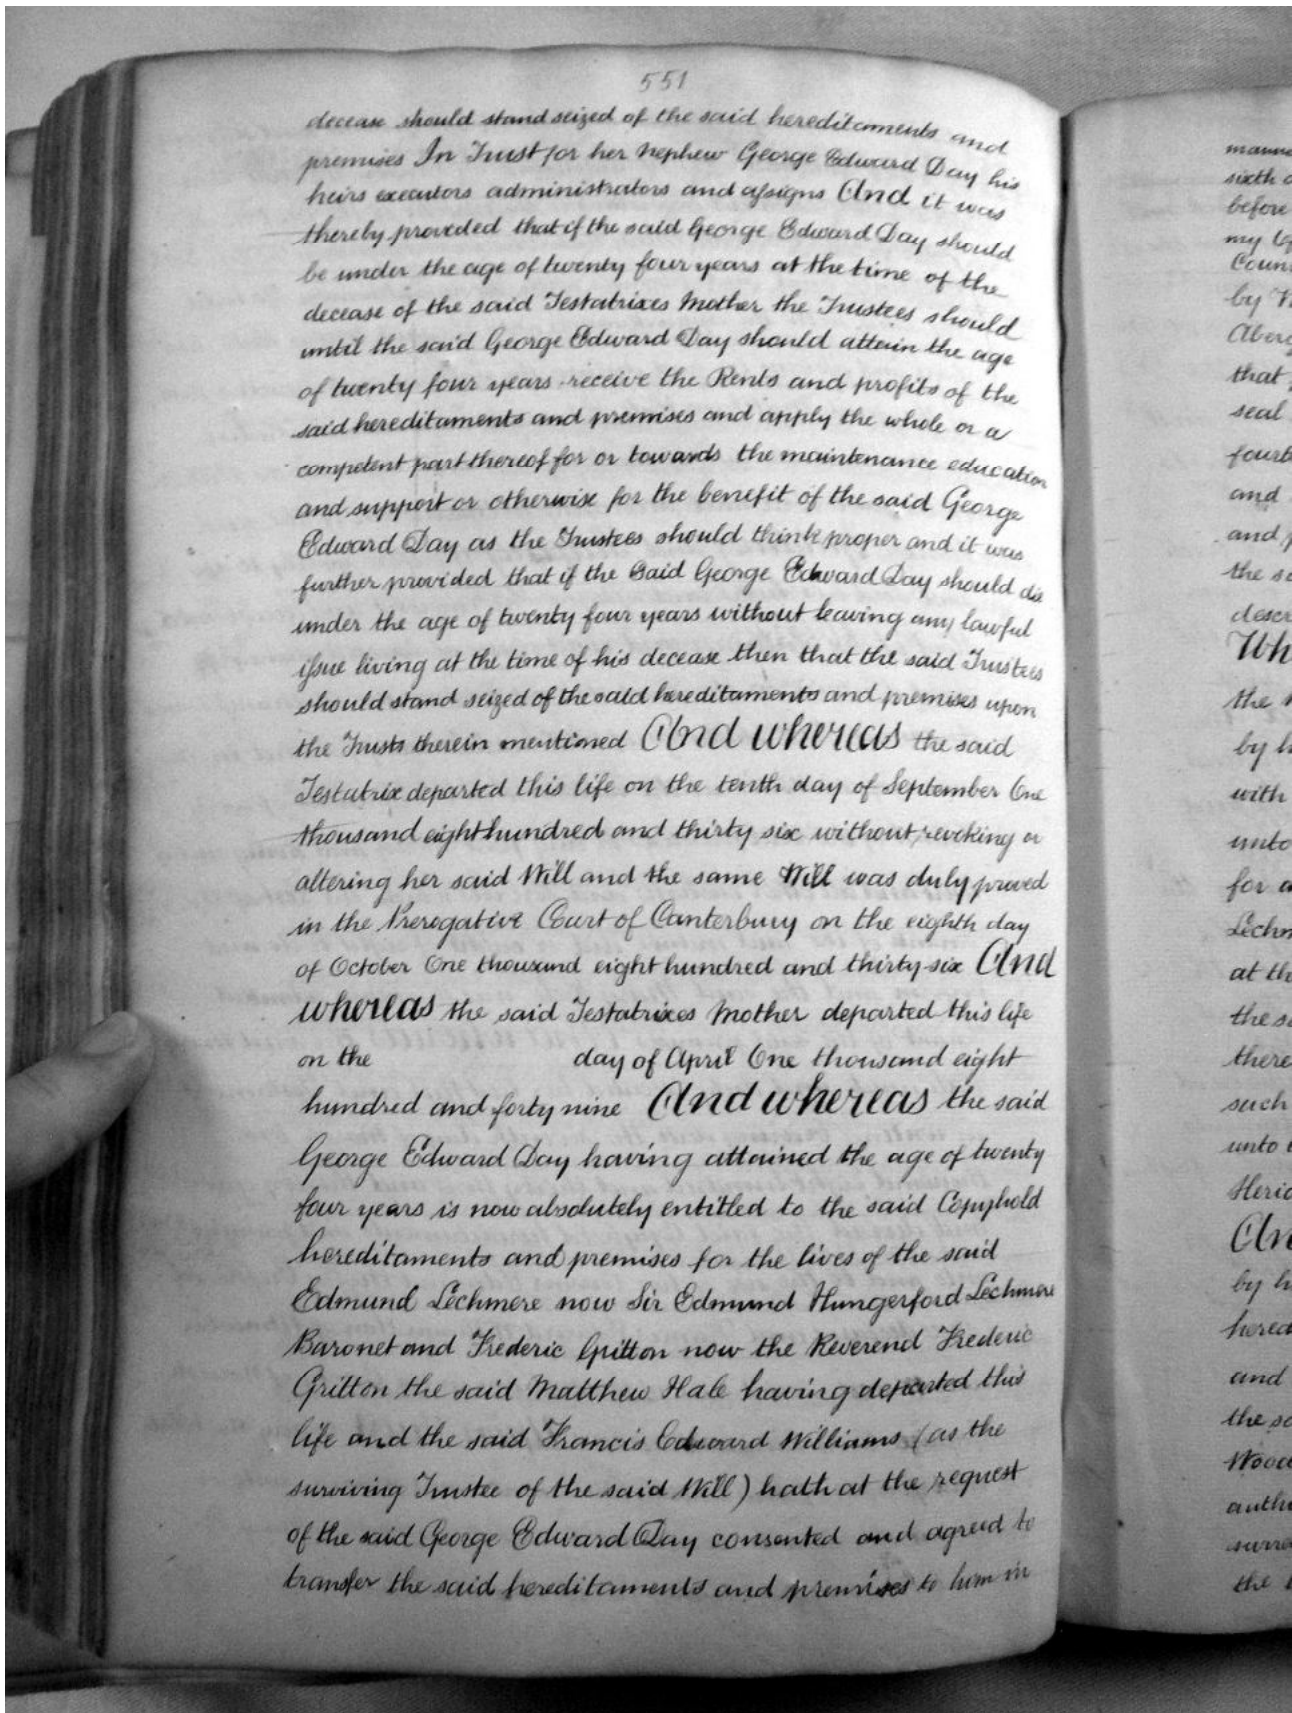 551
decease should stand seized of the said hereditaments and
premises In Trust for her nephew George Edward Day his
heirs executors administrators and assigns And it was
thereby provided that if the said George Edward Day should
be under the age of twenty four years at the time of the
decease of the said Testatrixes Mother the Trustees should
until the said George Edward Day should attain the age
of twenty four years receive the Rents and profits of the
said hereditaments and premises and apply the whole or a
competent part thereof for or towards the maintenance education
and support or otherwise for the benefit of the said George
Edward Day as the Trustees should think proper and it was
further provided that if the said George Edward Day should die
under the age of twenty four years without leaving any lawful
issue living at the time of his decease then that the said Trustees
should stand seized of the said hereditaments and premises upon
the Trusts therein mentioned And whereas the said
Testatrix departed this life on the tenth day of September One
thousand eight hundred and thirty six without revoking or
altering her said Will and the same Will was duly proved
in the Prerogative Court of Canterbury on the eighth day
of October One thousand eight hundred and thirty six And
whereas the said Testatrixes Mother departed this life
on the day of April One thousand eight
hundred and forty nine And whereas the said
George Edward Day having attained the age of twenty
four years is now absolutely entitled to the said Copyhold
hereditaments and premises for the lives of the said
Edmund Lechmere now Sir Edmund Hungerford Lechmere
Baronet and Frederic Gritton now the Reverend Frederic
Gritton the said Matthew Hale having departed this
life and the said Francis Edward Williams (as the
surviving Trustee of the said Will) hath at the request
of the said George Edward Day consented and agreed to
transfer the said hereditaments and premises to him in
sixth
before
my
by
that
seal
and
and
the
the
by
with
unto
for
at th
the
there
such
unto
An
by
and
the
the